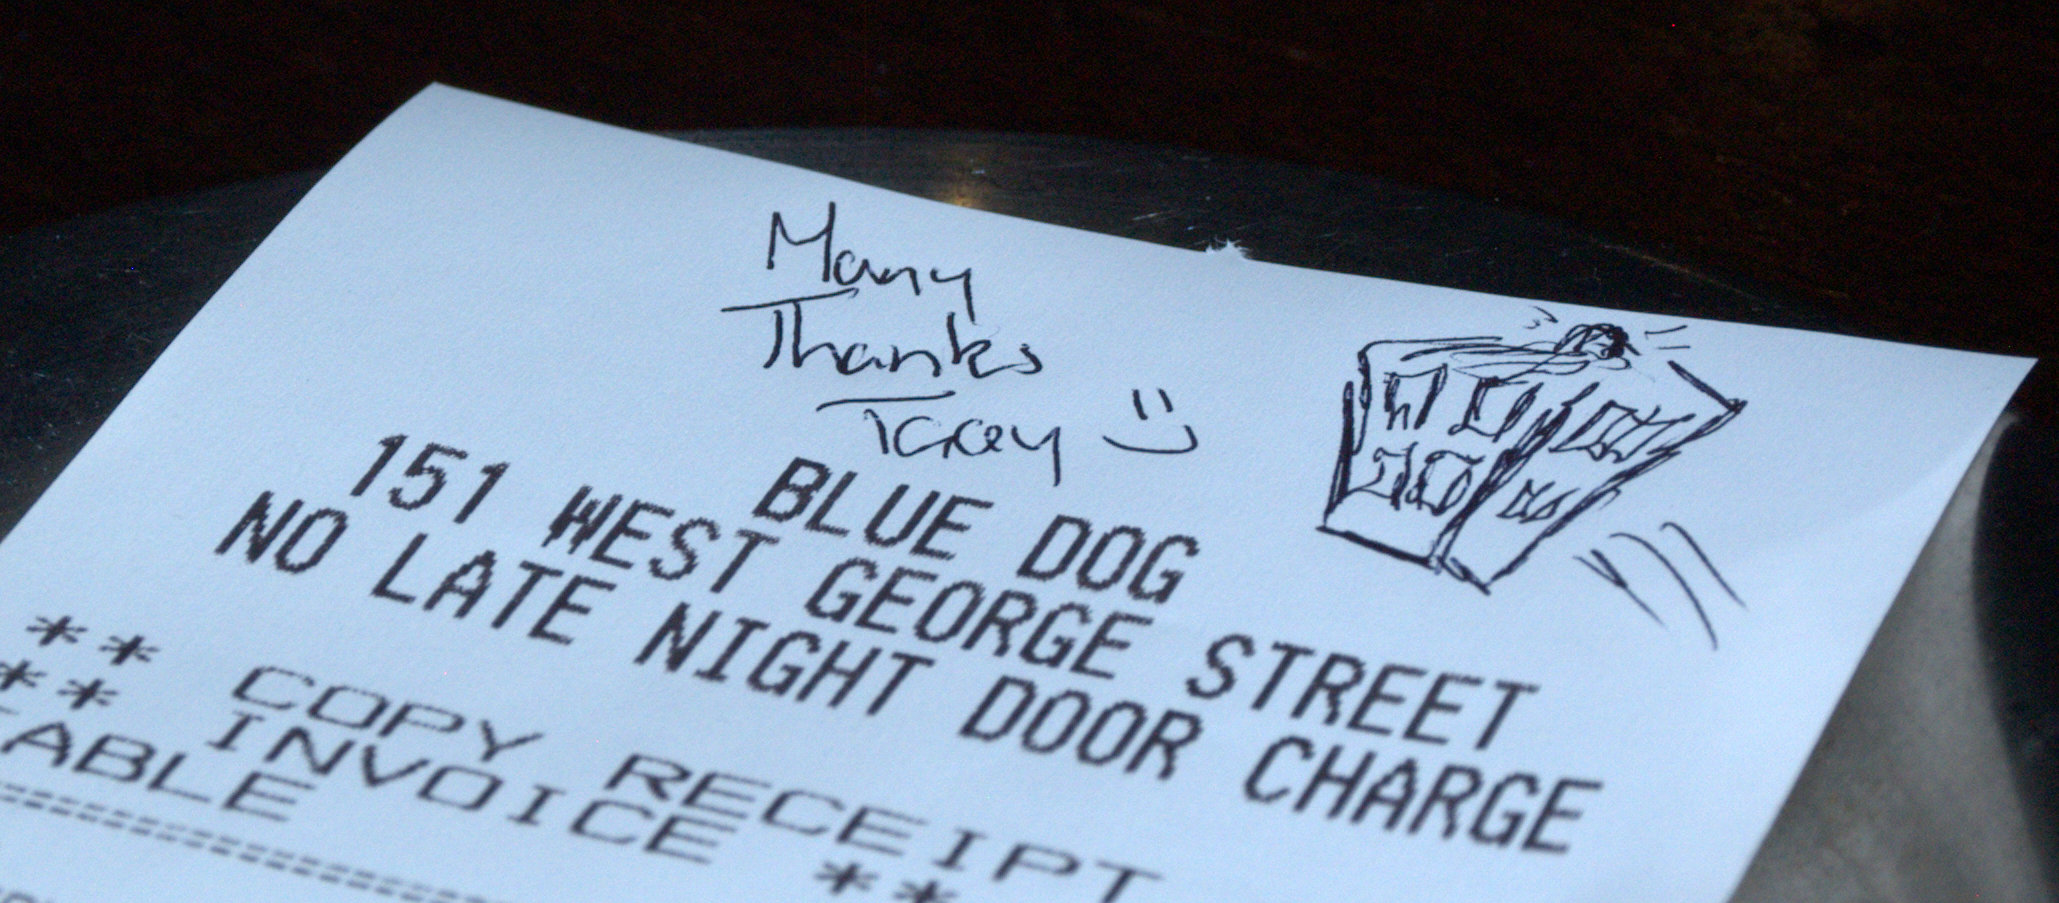 Many
Thanks
BLUE DOG
151 WEST GEORGE STREET
NO LATE NIGHT DOOR CHARGE
** COPY RECEIPT
** INVOICE **
TABLE